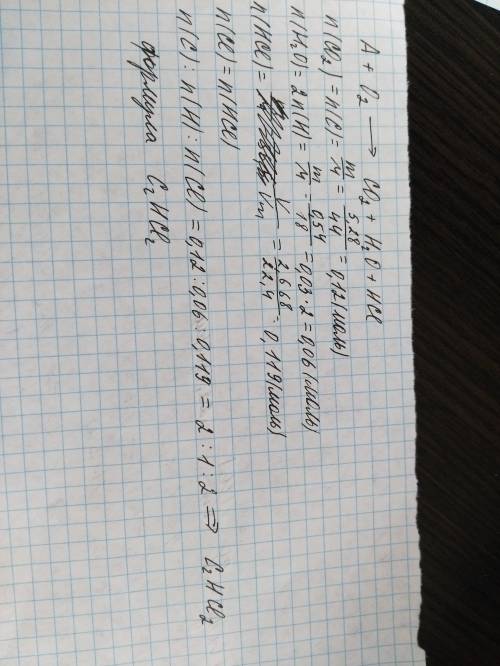 A + O₂ ⟶ CO₂ + H₂O + HCl
n(CO₂) = n(C) = m/M = 5,28/44 = 0,12(моль)
n(H₂O) = 2n(H) = m/M = 0,54/18 = 0,03·2 = 0,06(моль)
n(HCl) = V/Vm = 2,668/22,4 = 0,119(моль)
n(Cl) = n(HCl)
n(C) : n(H) : n(Cl) = 0,12 : 0,06 : 0,119 = 2 : 1 : 2 ⇒ C₂HCl₂
формула C₂HCl₂